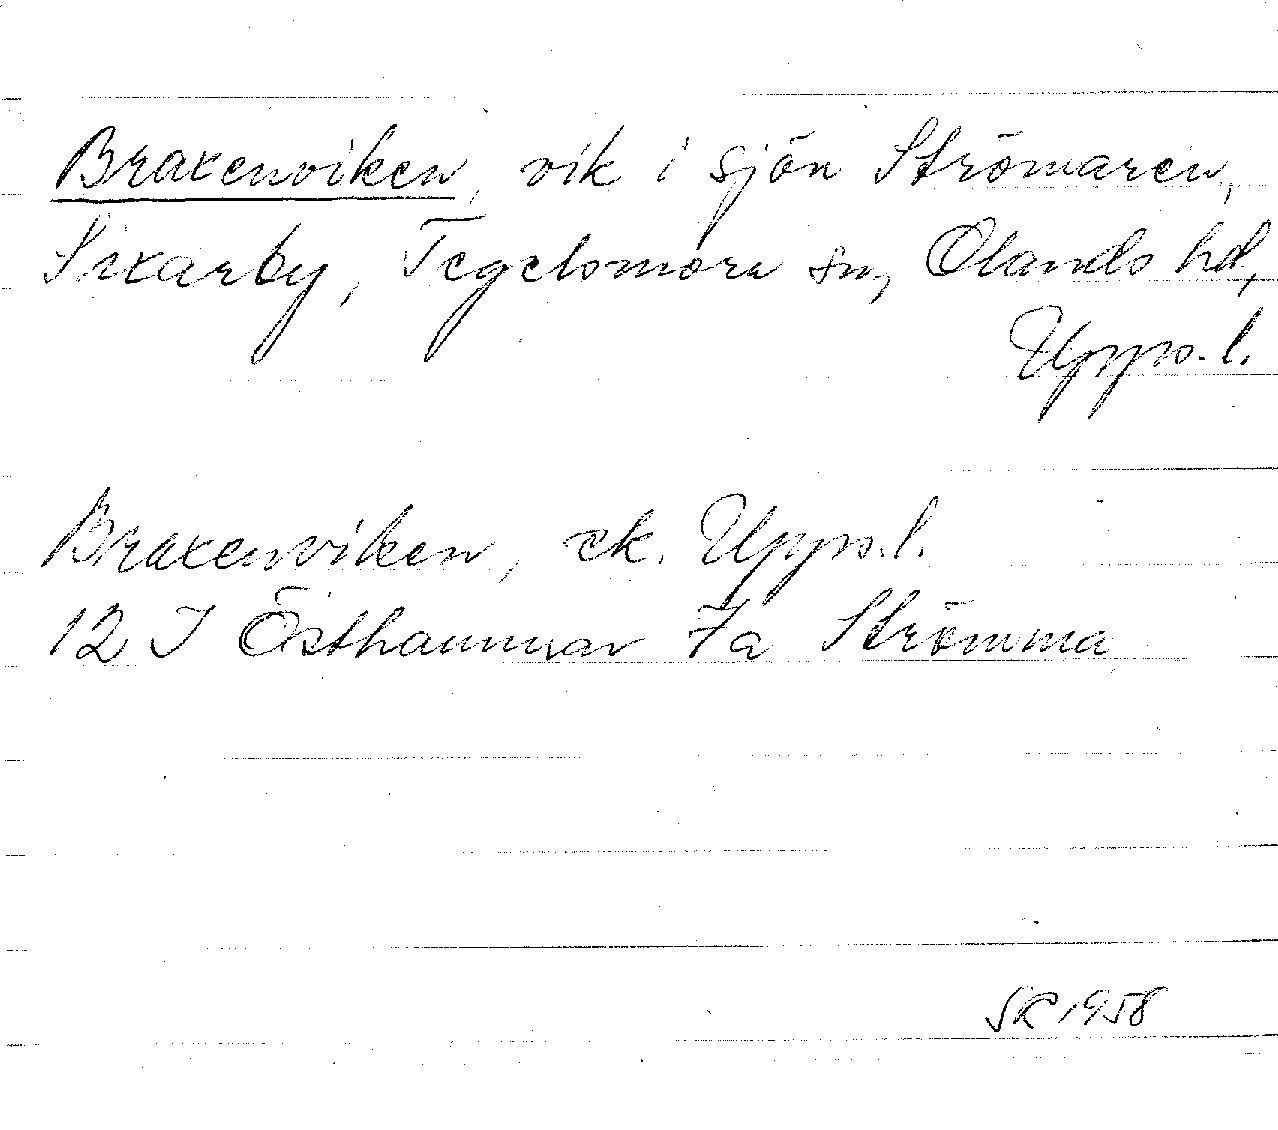 Braxenviken, vik i sjön Strömaren,
Sixarby, Tegelsmora sn, Olands hd,
Upps.l.
Braxenviken, ek. Upps.l.
12 I Östhammar 7a Strömma
SK 1958